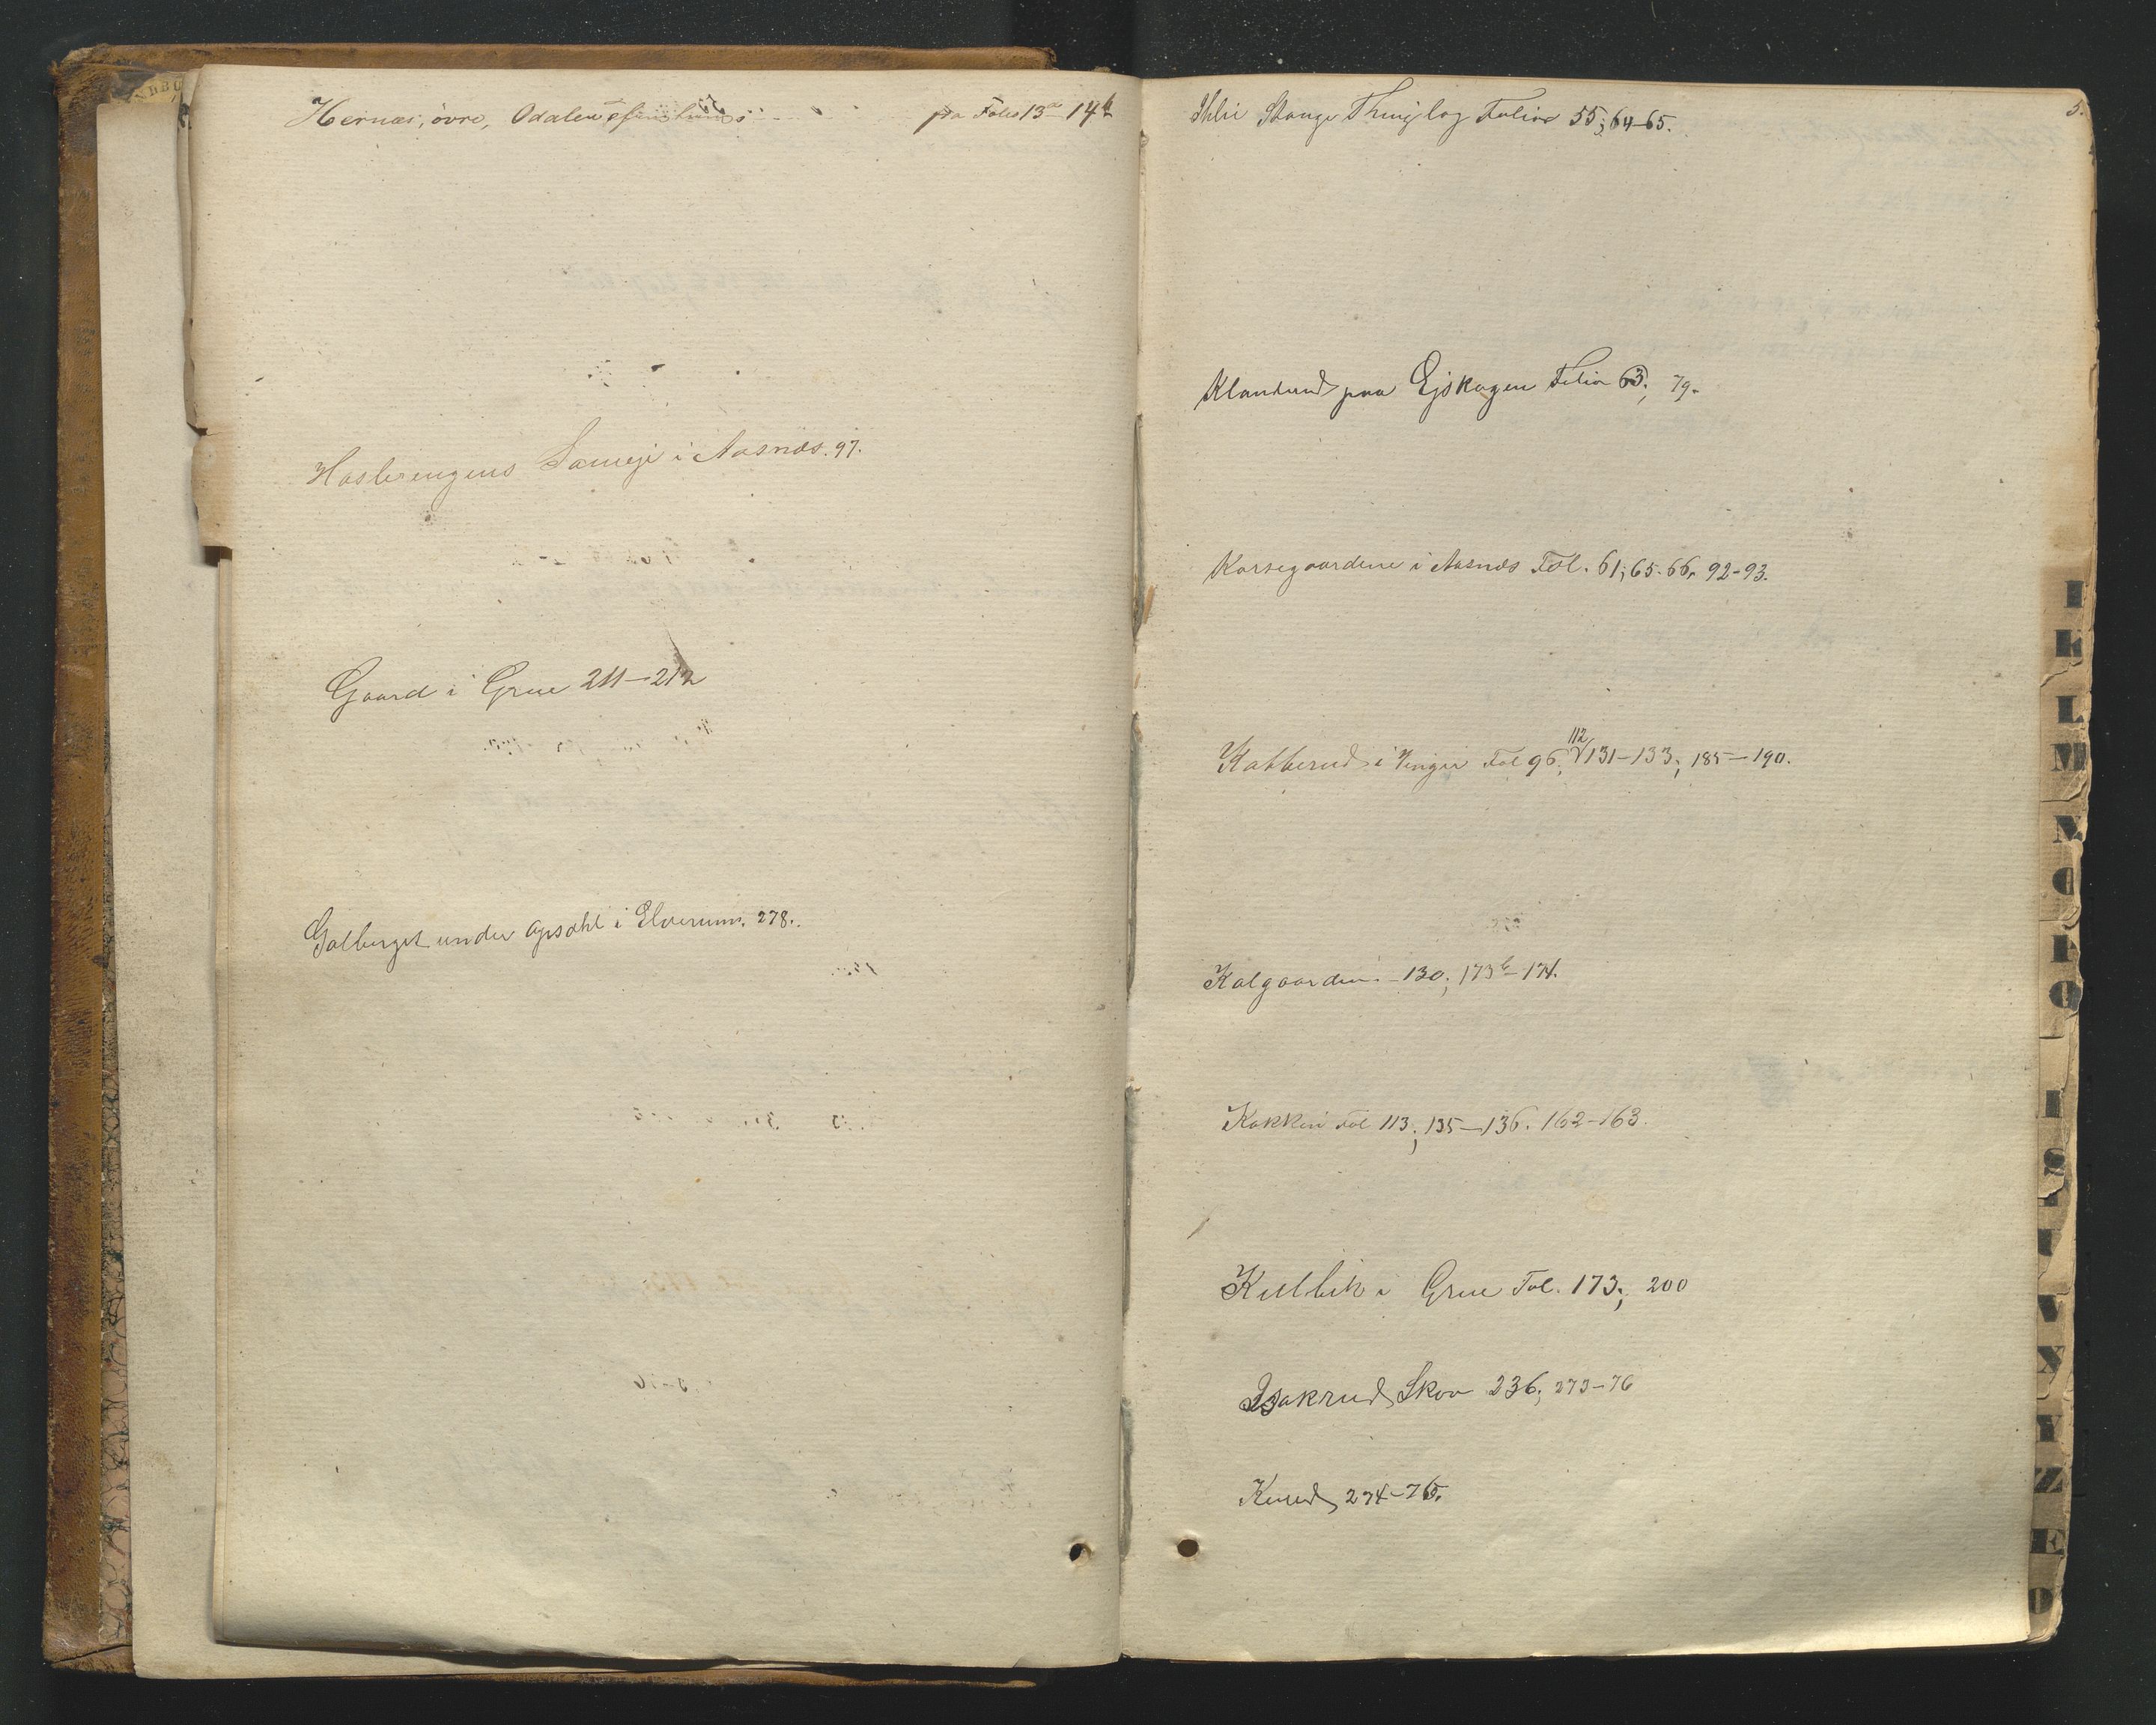 Hernæs, øvre, Odalen paa Folio 13a – 14b
Hasbrengens Sameje i Aasnæs. 97.
Gaard i Grue 211–212
Galberget under Opsahl i Elverum. 278.
5.
Ihlie Stange Thinglag Folio 55; 64–65.
paa Ejskagen Folio 63; 79.
Korsegaardene i Aasnæs Fol. 61; 65–66, 92–93.
Kabberud i Vinger Fol 96; 112 131–133; 185–190.
Kalgaarden 130; 173b–174.
Kakken Fol 113; 135–136. 162–163.
Kulblik i Grue Fol. 173; 200
Isakrud Skov 236; 273–76
Knud 274–76.
I
K
L
M
N
O
P
Q
S
V
X
Y
Z
Æ
Ø